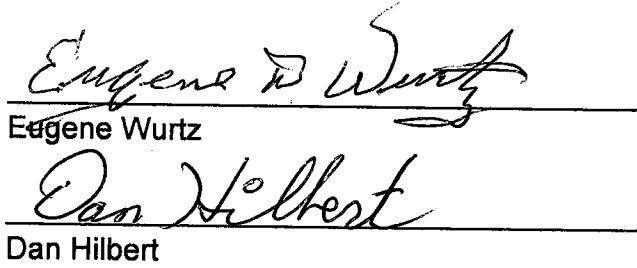 Eugene D Wurtz
Eugene Wurtz
Dan Hilbert
Dan Hilbert